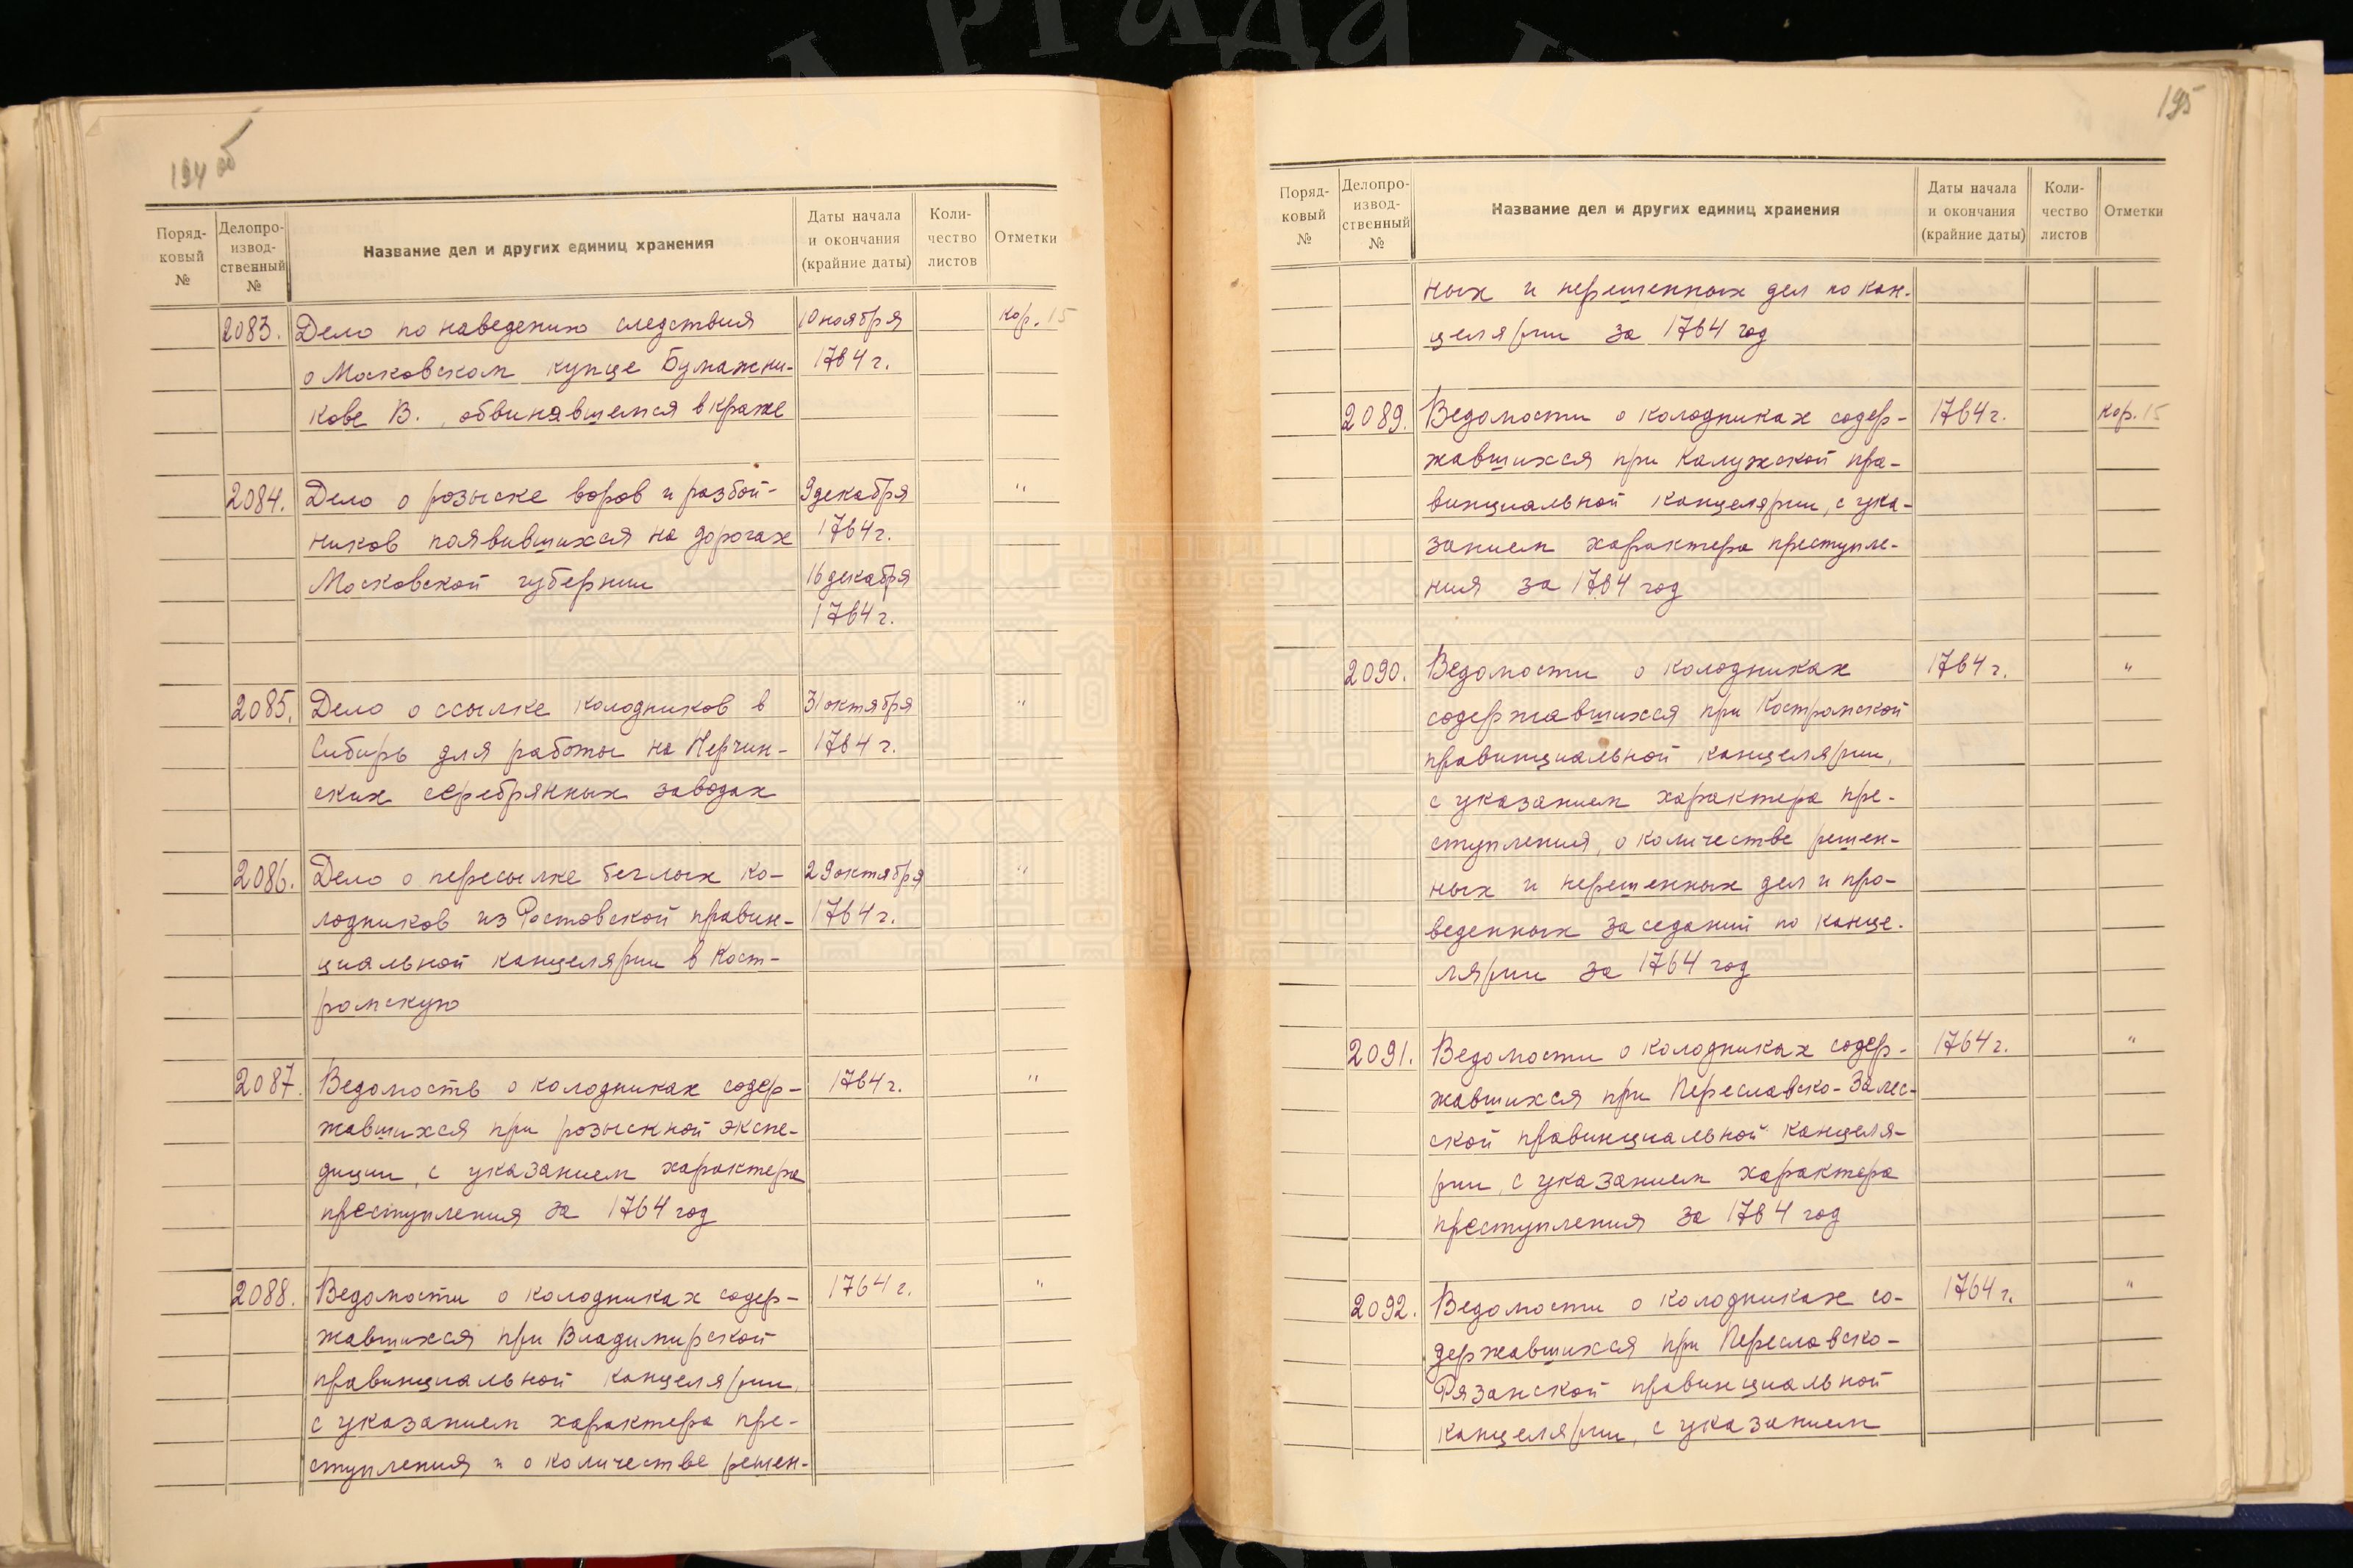 194 об
Поряд-
ковый
№
Делопро-
извод-
ственный
№
Название дел и других единиц хранения
Даты начала
и окончания
(крайние даты)
Коли-
чество
листов
Отметки
2083. Дело по наведению следствия 10 ноября кор. 15
о Московском купце Бумажни- 1764 г.
кове В., обвинявшемся в краже
2084. Дело о розыске воров и разбой- 9 декабря "
ников появившихся на дорогах 1764 г.
Московской губернии 16 декабря
1764 г.
2085. Дело о ссылке колодников в 31 октября "
Сибирь для работы на Нерчин- 1764 г.
ских серебрянных заводах
2086. Дело о пересылке беглых ко- 29 октября "
лодников из Ростовской правин- 1764 г.
циальной канцелярии в Кост-
ромскую
2087. Ведомость о колодниках содер- 1764 г. "
жавшихся при розыскной экспе-
диции, с указанием характера
преступления за 1764 год
2088. Ведомости о колодниках содер- 1764 г. "
жавшихся при Владимирской
правинциальной канцелярии,
с указанием характера пре-
ступления и о количестве решен-
195
Поряд-
ковый
№
Делопро-
извод-
ственный
№
Название дел и других единиц хранения
Даты начала
и окончания
(крайние даты)
Коли-
чество
листов
Отметки
ных и нерешенных дел по кан-
целярии за 1764 год
2089. Ведомости о колодниках содер- 1764 г. кор. 15
жавшихся при Калужской пра-
винциальной канцелярии, с ука-
занием характера преступле-
ния за 1764 год
2090. Ведомости о колодниках 1764 г. "
содержавшихся при Костромской
правинциальной канцелярии,
с указанием характера пре-
ступления, о количестве решен-
ных и нерешенных дел и про-
веденных заседаний по канце-
лярии за 1764 год
2091. Ведомости о колодниках содер- 1764 г. "
жавшихся при Переславско-Залес-
ской правинциальной канцеля-
рии, с указанием характера
преступления за 1764 год
2092. Ведомости о колодниках со- 1764 г. "
державшихся при Переславско-
Рязанской правинциальной
канцелярии, с указанием